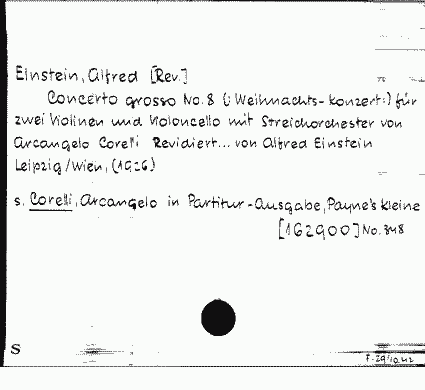 Einstein, Alfred [Rev.]
Concerto grosso No. 8 (: Weihnachts-Konzert:) für
zwei Violinen und Violoncello mit Streichorchester von
Arcangelo Corelli Revidiert... von Alfred Einstein
Leipzig/Wien, (1926)
s. Corelli, Arcangelo in Partitur-Ausgabe, Payne's kleine
[162900] No. 348
S